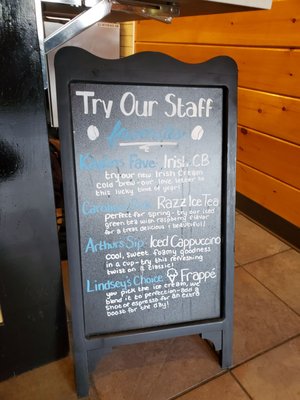 Try Our Staff
Favorites
Fave: Irish CB
try our new Irish Cream
cold brew - our love letter to
this lucky time of year!
Razz Ice Tea
perfect for spring - try our iced
green tea with raspberry flavor
for a treat delicious & beautiful!
Arthur's Sip: Iced Cappuccino
cool, sweet, foamy goodness
in a cup - try this refreshing
twist on a classic!
Lindsey's Choice: Frappé
you pick the ice cream, we
blend it to perfection - and a
shot of espresso for an extra
boost for the day!